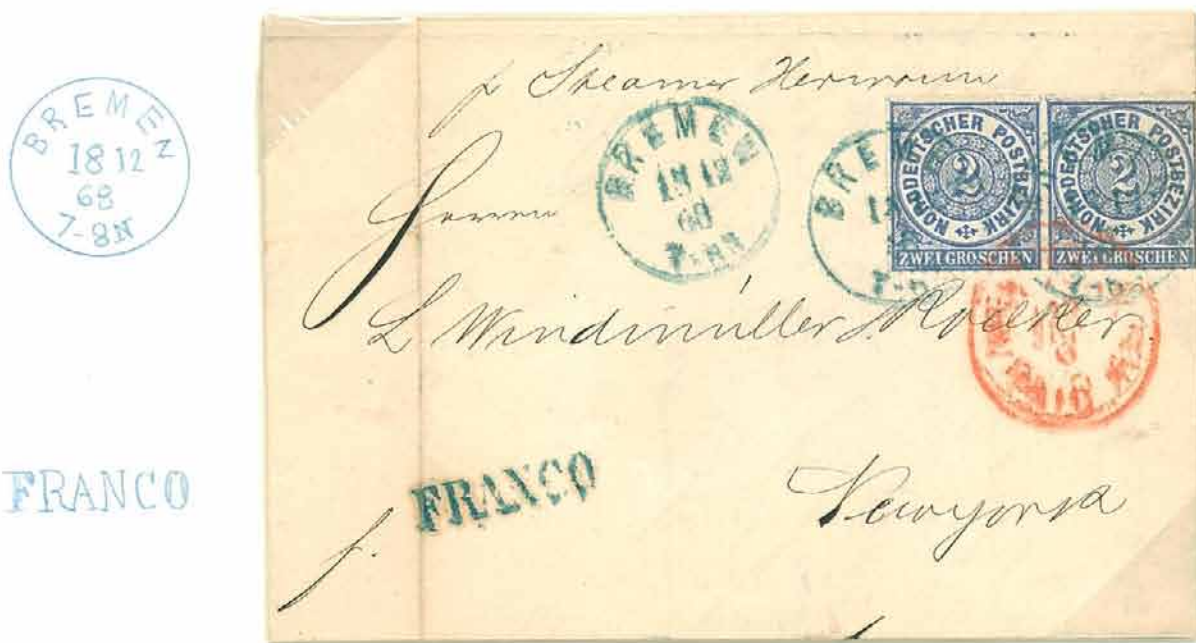 BREMEN
18 12
68
7-8N
FRANCO
p Steamer Hermann
BREMEN
18 12
68
7-8N
BREMEN
NORDDEUTSCHER POSTBEZIRK
2
ZWEI GROSCHEN
NORDDEUTSCHER POSTBEZIRK
2
ZWEI GROSCHEN
Herren
L Windmüller & Roelker
Newyork
FRANCO
f.